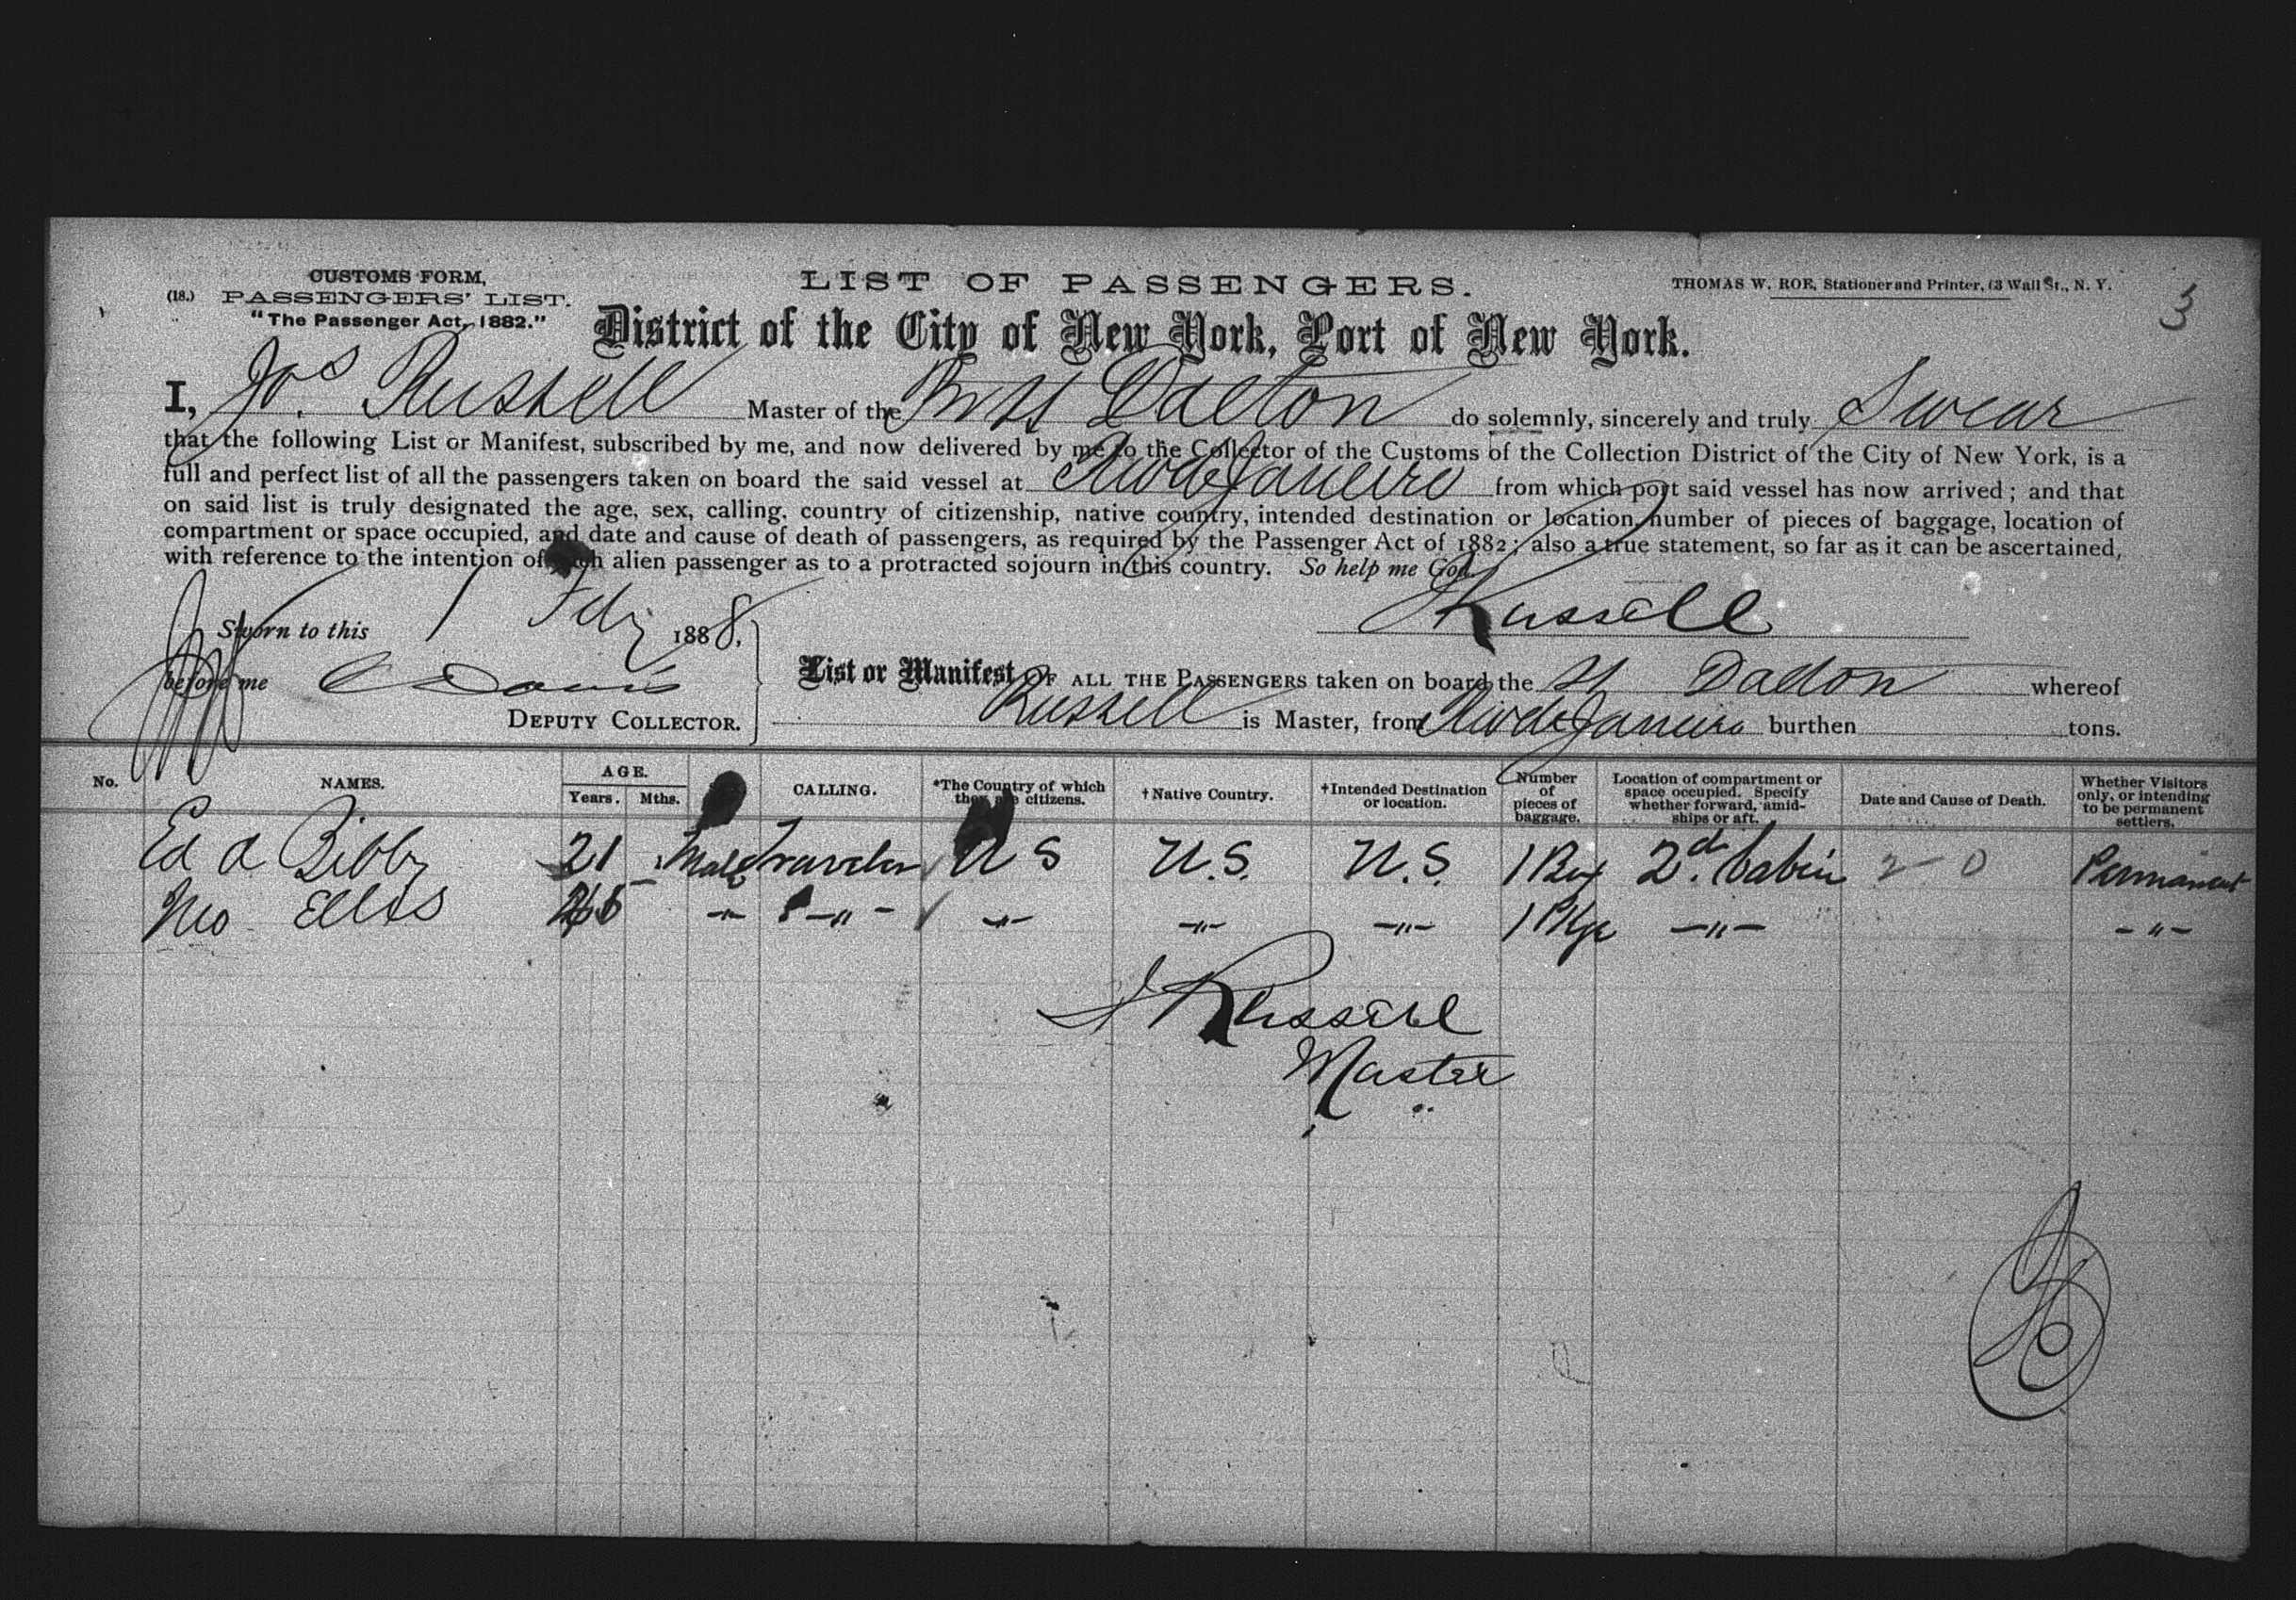 CUSTOMS FORM,
(18.) PASSENGERS' LIST.
"The Passenger Act, 1882."
LIST OF PASSENGERS.
THOMAS W. ROE, Stationer and Printer, 63 Wall St., N. Y.
3
District of the City of New York, Port of New York.
I, Jos. Russell Master of the Br SS Dalton do solemnly, sincerely and truly Swear
that the following List or Manifest, subscribed by me, and now delivered by me to the Collector of the Customs of the Collection District of the City of New York, is a
full and perfect list of all the passengers taken on board the said vessel at Rio de Janeiro from which port said vessel has now arrived; and that
on said list is truly designated the age, sex, calling, country of citizenship, native country, intended destination or location, number of pieces of baggage, location of
compartment or space occupied, and date and cause of death of passengers, as required by the Passenger Act of 1882; also a true statement, so far as it can be ascertained,
with reference to the intention of each alien passenger as to a protracted sojourn in this country. So help me God.
Sworn to this 1 Feby 1888.
J Russell
before me C Davis
DEPUTY COLLECTOR.
List or Manifest OF ALL THE PASSENGERS taken on board the SS Dalton whereof
Russell is Master, from Rio de Janeiro burthen tons.
No. NAMES. AGE. Years. Mths. CALLING. *The Country of which they are citizens. †Native Country. †Intended Destination or location. Number of pieces of baggage. Location of compartment or space occupied. Specify whether forward, amidships or aft. Date and Cause of Death. Whether Visitors only, or intending to be permanent settlers.
Ed A Bibby 21 Male Traveler U S U.S. U.S. 1 Box 2d. Cabin 2 0 Permanent
Ellis -"- -"- -"- -"- -"- 1 Pkge -"- -"-
J Russell
Master